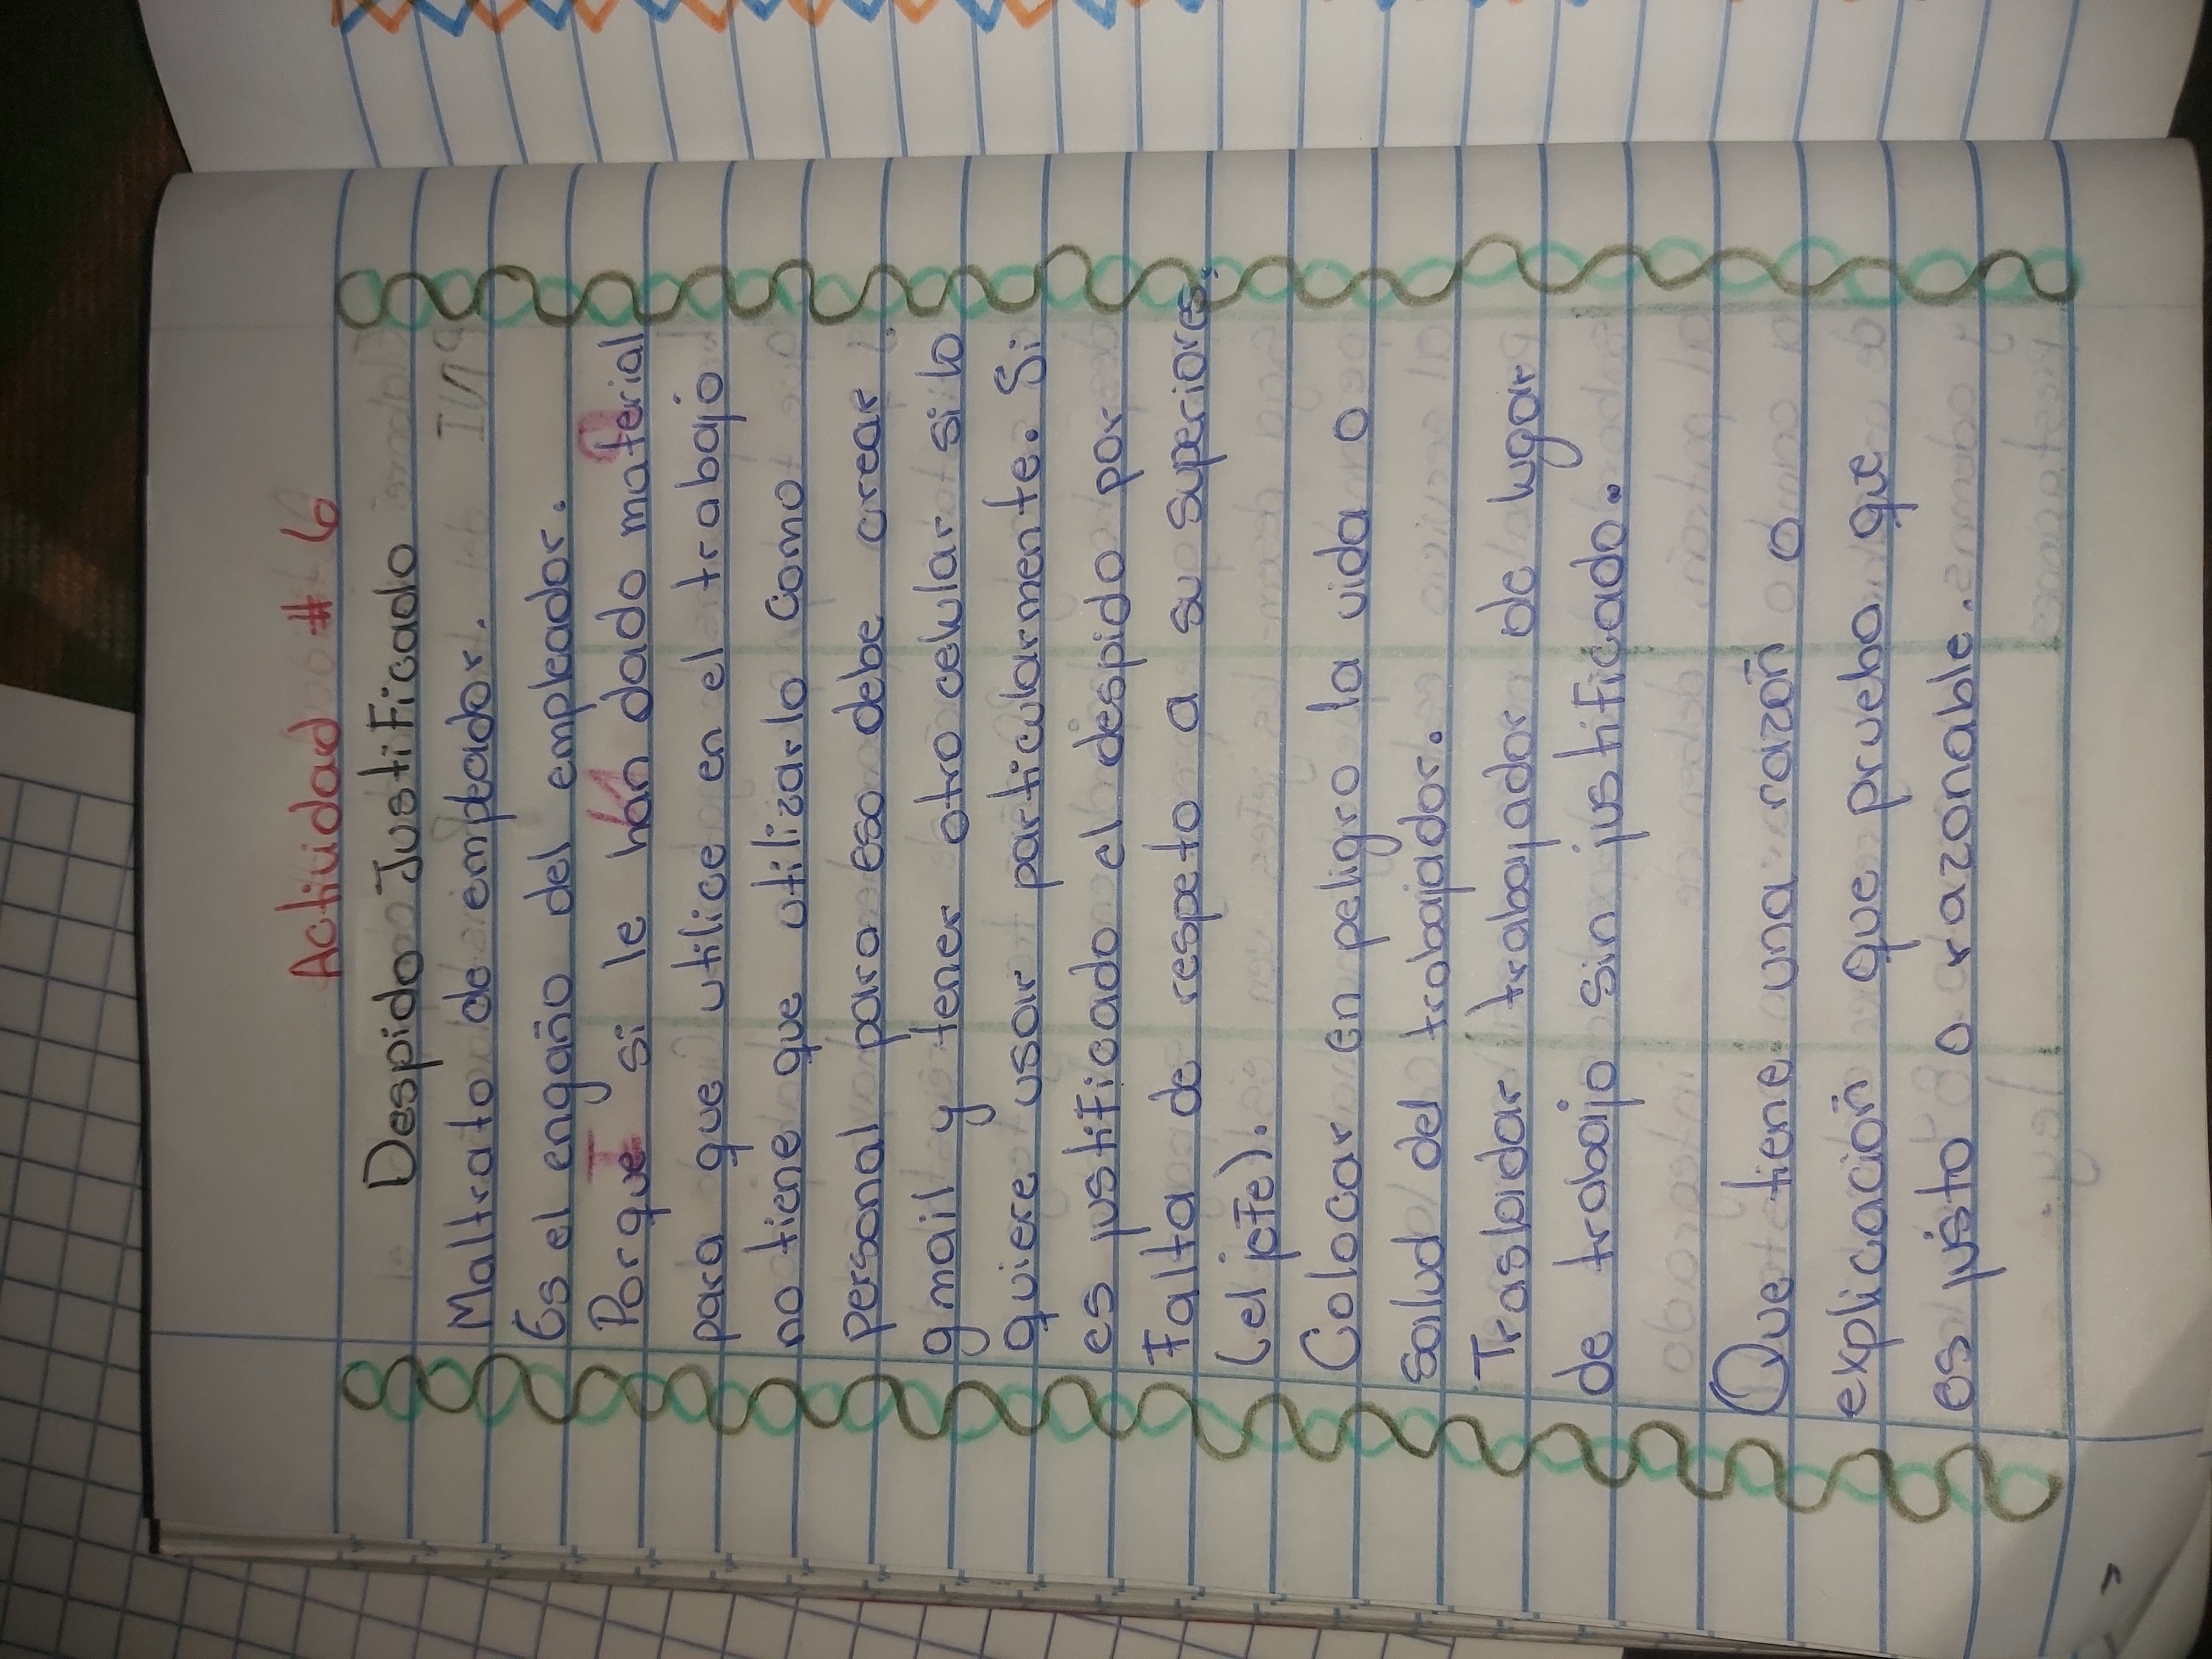 Actividad # 6
Despido Justificado
Maltrato de empleador.
Es el engaño del empleador.
Porque si le han dado material
para que utilice en el trabajo
no tiene que utilizarlo como
personal para eso debe crear
gmail y tener otro celular si lo
quiere usar particularmente. Si
es justificado el despido por
Falta de respeto a su superiores.
(el jefe).
Colocar en peligro la vida o
salud del trabajador.
Trasladar trabajador de lugar
de trabajo sin justificado.
Que tiene una razón o
explicación que prueba que
es justo o razonable.